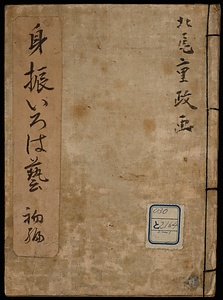 北尾重政画
身振いろは藝 初編